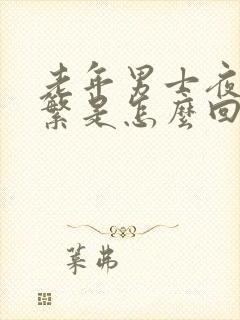 老年男士夜
繁是怎麼回
葉弗